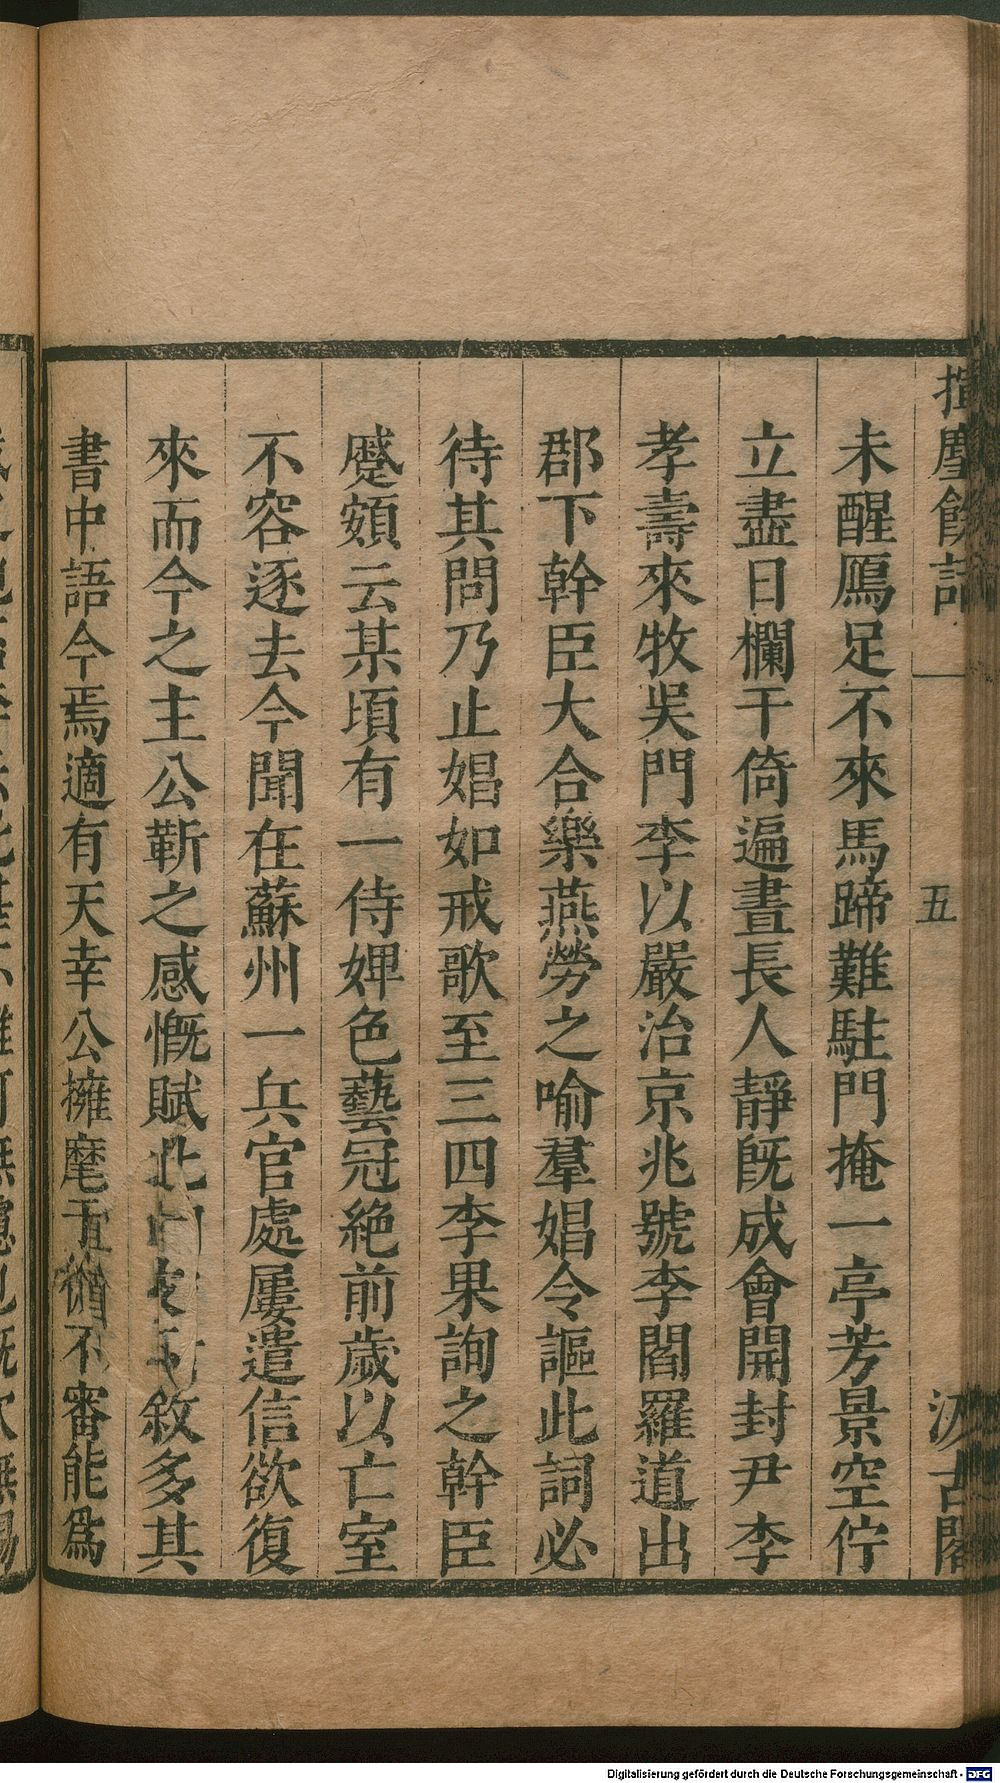 揮麈餘話
五
汲古閣
未醒鴈足不來馬蹄難駐門掩一亭芳景空佇
立盡日欄干倚遍晝長人靜旣成會開封尹李
孝壽來牧吳門李以嚴治京兆號李閻羅道出
郡下幹臣大合樂燕勞之喻羣娼令謳此詞必
待其問乃止娼如戒歌至三四李果詢之幹臣
蹙頞云某頃有一侍婢色藝冠絶前歲以亡室
不容逐去今聞在蘇州一兵官處屢遣信欲復
來而今之主公靳之感慨賦此敘多其
書中語今焉適有天幸公擁麾于彼不審能爲
Digitalisierung gefördert durch die Deutsche Forschungsgemeinschaft - DFG